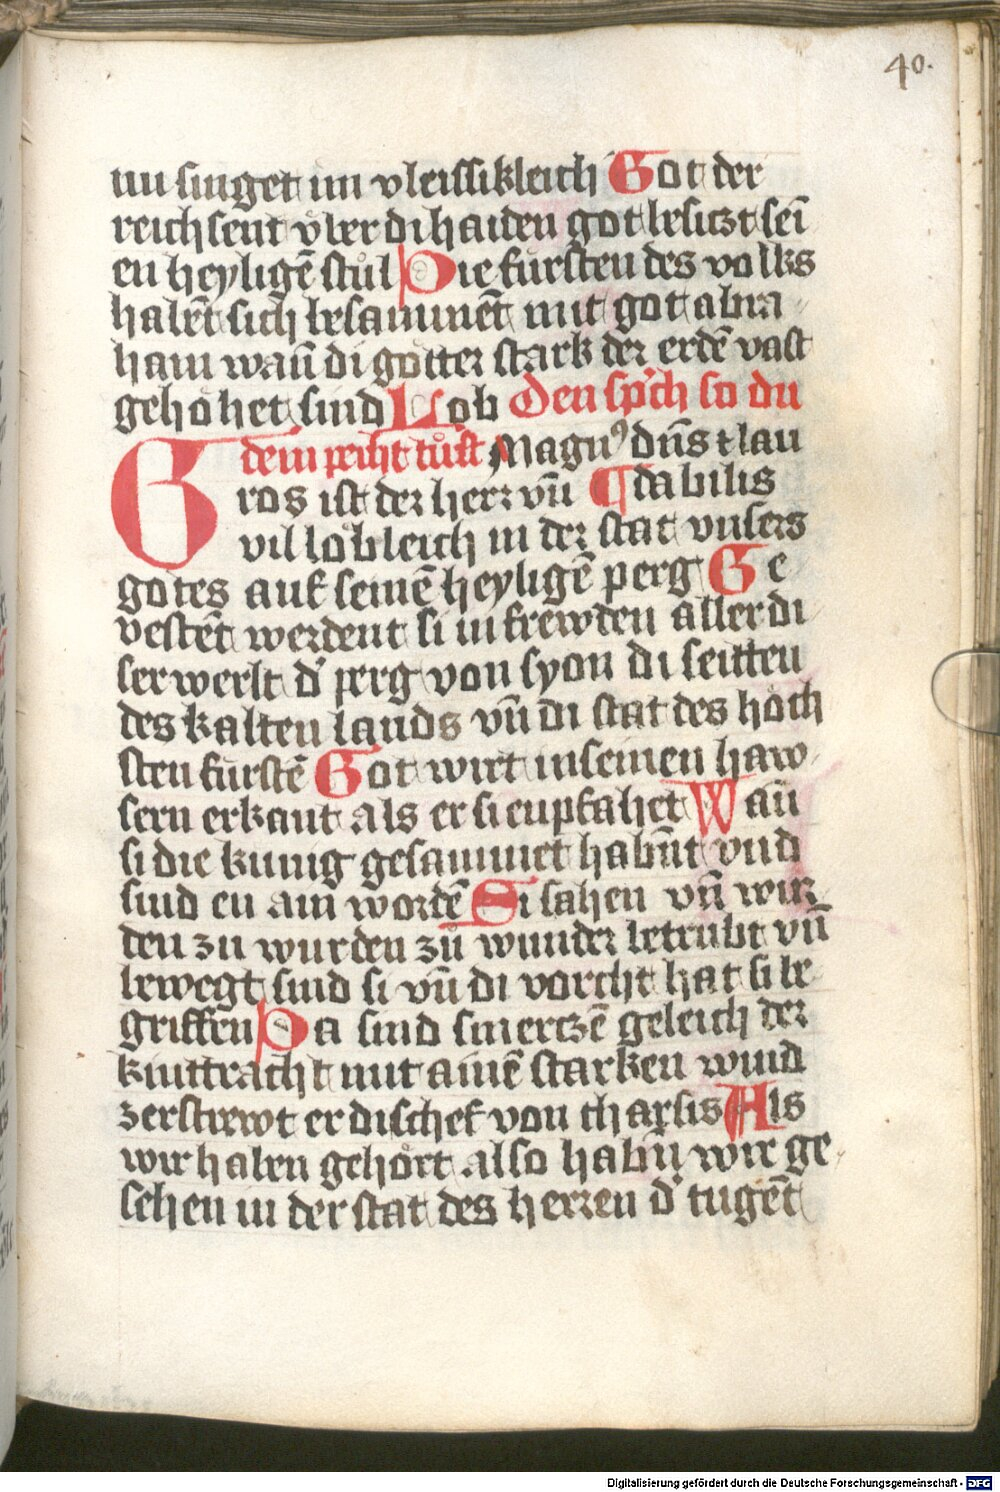 40.
nu singet im vleissikleich Got der
reichsent vber di haiden got besiczt sei
en heyligē stůl Die fursten des volks
habēt sich besammēt mit got abra
ham wañ di gotter stark der erdē vast
gehohet sind Lob Den sp̄ch so du
dem peiht tůst Magnꝰ dn̄s ⁊ lau
Gros ist der herr vn̄ ¶ dabilis
vil lobleich in der stat vnsers
gotes auf seinē heyligē perg Ge
vestēt werdent si in frewden aller di
ser werlt d' perg von syon di seitten
des kalten lands vn̄ di stat des hoch
sten furstē Got wirt in seinen haw
sern erkant als er si enpfahet Wañ
si die kunig gesammet habn̄t vnd
sind en ain wordē Si sahen vn̄ wur
den zu wurden zů wunder betrubt vn̄
bewegt sind si vn̄ di vorcht hat si be
griffen Da sind smerczē geleich der
kinttracht mit ainē starken wind
zerstrewt er di schef von tharsis Als
wir haben gehort also habn̄ wir ge
sehen in der stat des herren d' tugēt
Digitalisierung gefördert durch die Deutsche Forschungsgemeinschaft - DFG